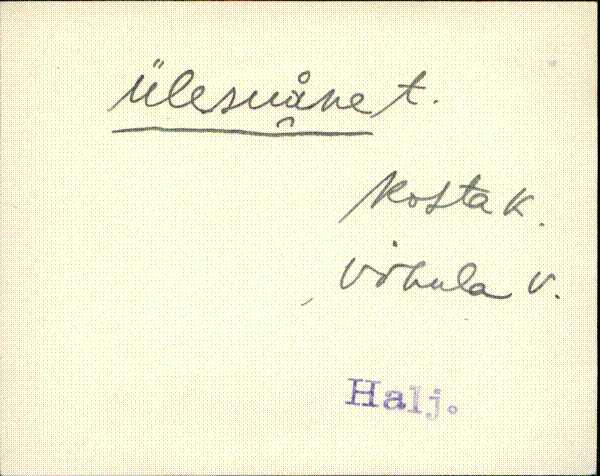 Ülesuåne t.
Kosta K.
Võhula V.
Halj.